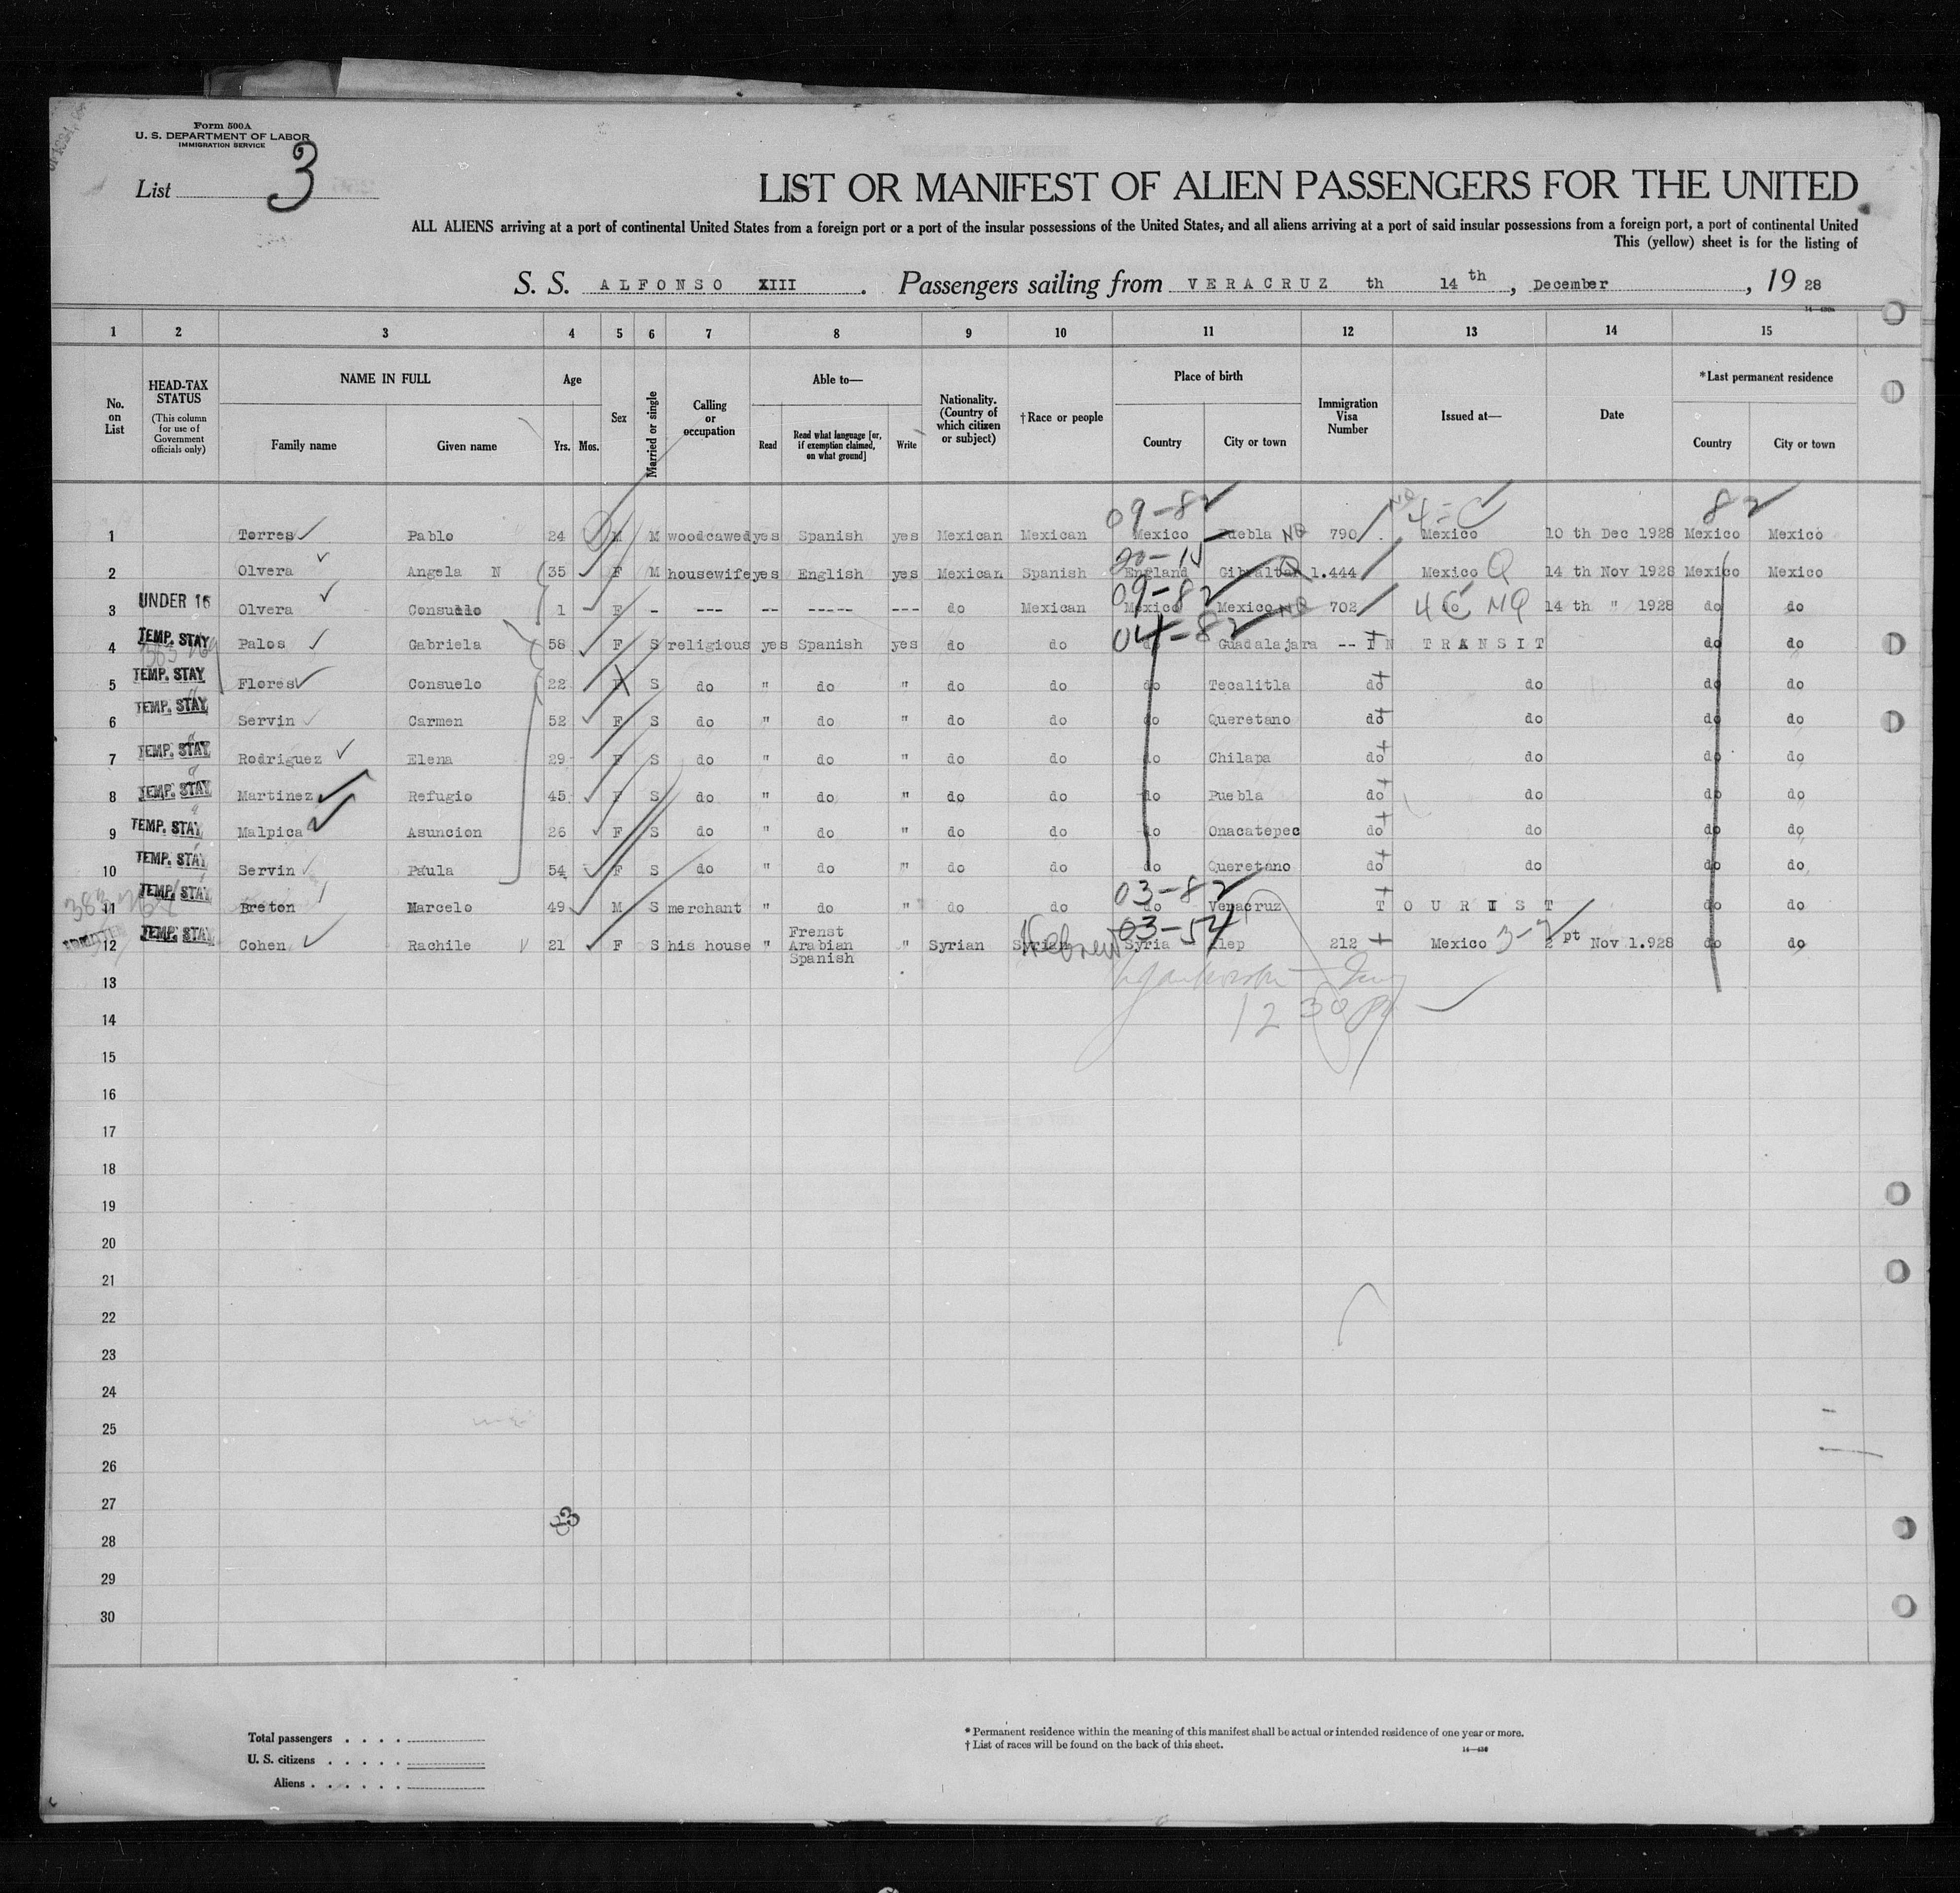 Form 500A
U. S. DEPARTMENT OF LABOR
IMMIGRATION SERVICE
List 3
LIST OR MANIFEST OF ALIEN PASSENGERS FOR THE UNITED
ALL ALIENS arriving at a port of continental United States from a foreign port or a port of the insular possessions of the United States, and all aliens arriving at a port of said insular possessions from a foreign port, a port of continental United
This (yellow) sheet is for the listing of
S. S. ALFONSO XIII . Passengers sailing from VERACRUZ th 14 th, December, 19 28
1 2 3 4 5 6 7 8 9 10 11 12 13 14 15
No. on List
HEAD-TAX STATUS
(This column for use of Government officials only)
NAME IN FULL
Family name Given name
Age
Yrs. Mos.
Sex
Married or single
Calling or occupation
Able to—
Read Read what language [or, if exemption claimed, on what ground] Write
Nationality. (Country of which citizen or subject)
†Race or people
Place of birth
Country City or town
Immigration Visa Number
Issued at—
Date
*Last permanent residence
Country City or town
09-82 NQ 4=C 82
1 Torres Pablo 24 M M woodcawed yes Spanish yes Mexican Mexican Mexico Puebla NQ 790 Mexico 10 th Dec 1928 Mexico Mexico
20-15
2 Olvera Angela N 35 F M housewife yes English yes Mexican Spanish England Gibraltar Q 1.444 Mexico Q 14 th Nov 1928 Mexico Mexico
09-82
3 UNDER 16 Olvera Consuelo 1 F - --- -- ----- --- do Mexican Mexico Mexico NQ 702 4C do NQ 14 th " 1928 do do
04-82
4 TEMP. STAY Palos Gabriela 58 F S religious yes Spanish yes do do do Guadalajara -- IN TRANSIT do do
5 TEMP. STAY Flores Consuelo 22 F S do " do " do do do Tecalitla do do do do
6 TEMP. STAY Servin Carmen 52 F S do " do " do do do Queretano do do do do
7 TEMP. STAY Rodriguez Elena 29 F S do " do " do do do Chilapa do do do do
8 TEMP. STAY Martinez Refugio 45 F S do " do " do do do Puebla do do do do
9 TEMP. STAY Malpica Asuncion 26 F S do " do " do do do Onacatepec do do do do
10 TEMP. STAY Servin Paula 54 F S do " do " do do do Queretano do do do do
03-82
11 TEMP. STAY Breton Marcelo 49 M S merchant " do " do do do Veracruz TOURIST do do
03-54
12 TEMP. STAY Cohen Rachile 21 F S his house " Frenst Arabian Spanish " Syrian Syrian Hebrew Syria Alep 212 Mexico 3-2 pt Nov 1.928 do do
13
14
15
16
17
18
19
20
21
22
23
24
25
26
27
28
29
30
Total passengers . . . .
U. S. citizens . . . . .
Aliens . . . . . .
* Permanent residence within the meaning of this manifest shall be actual or intended residence of one year or more.
† List of races will be found on the back of this sheet.
14—438